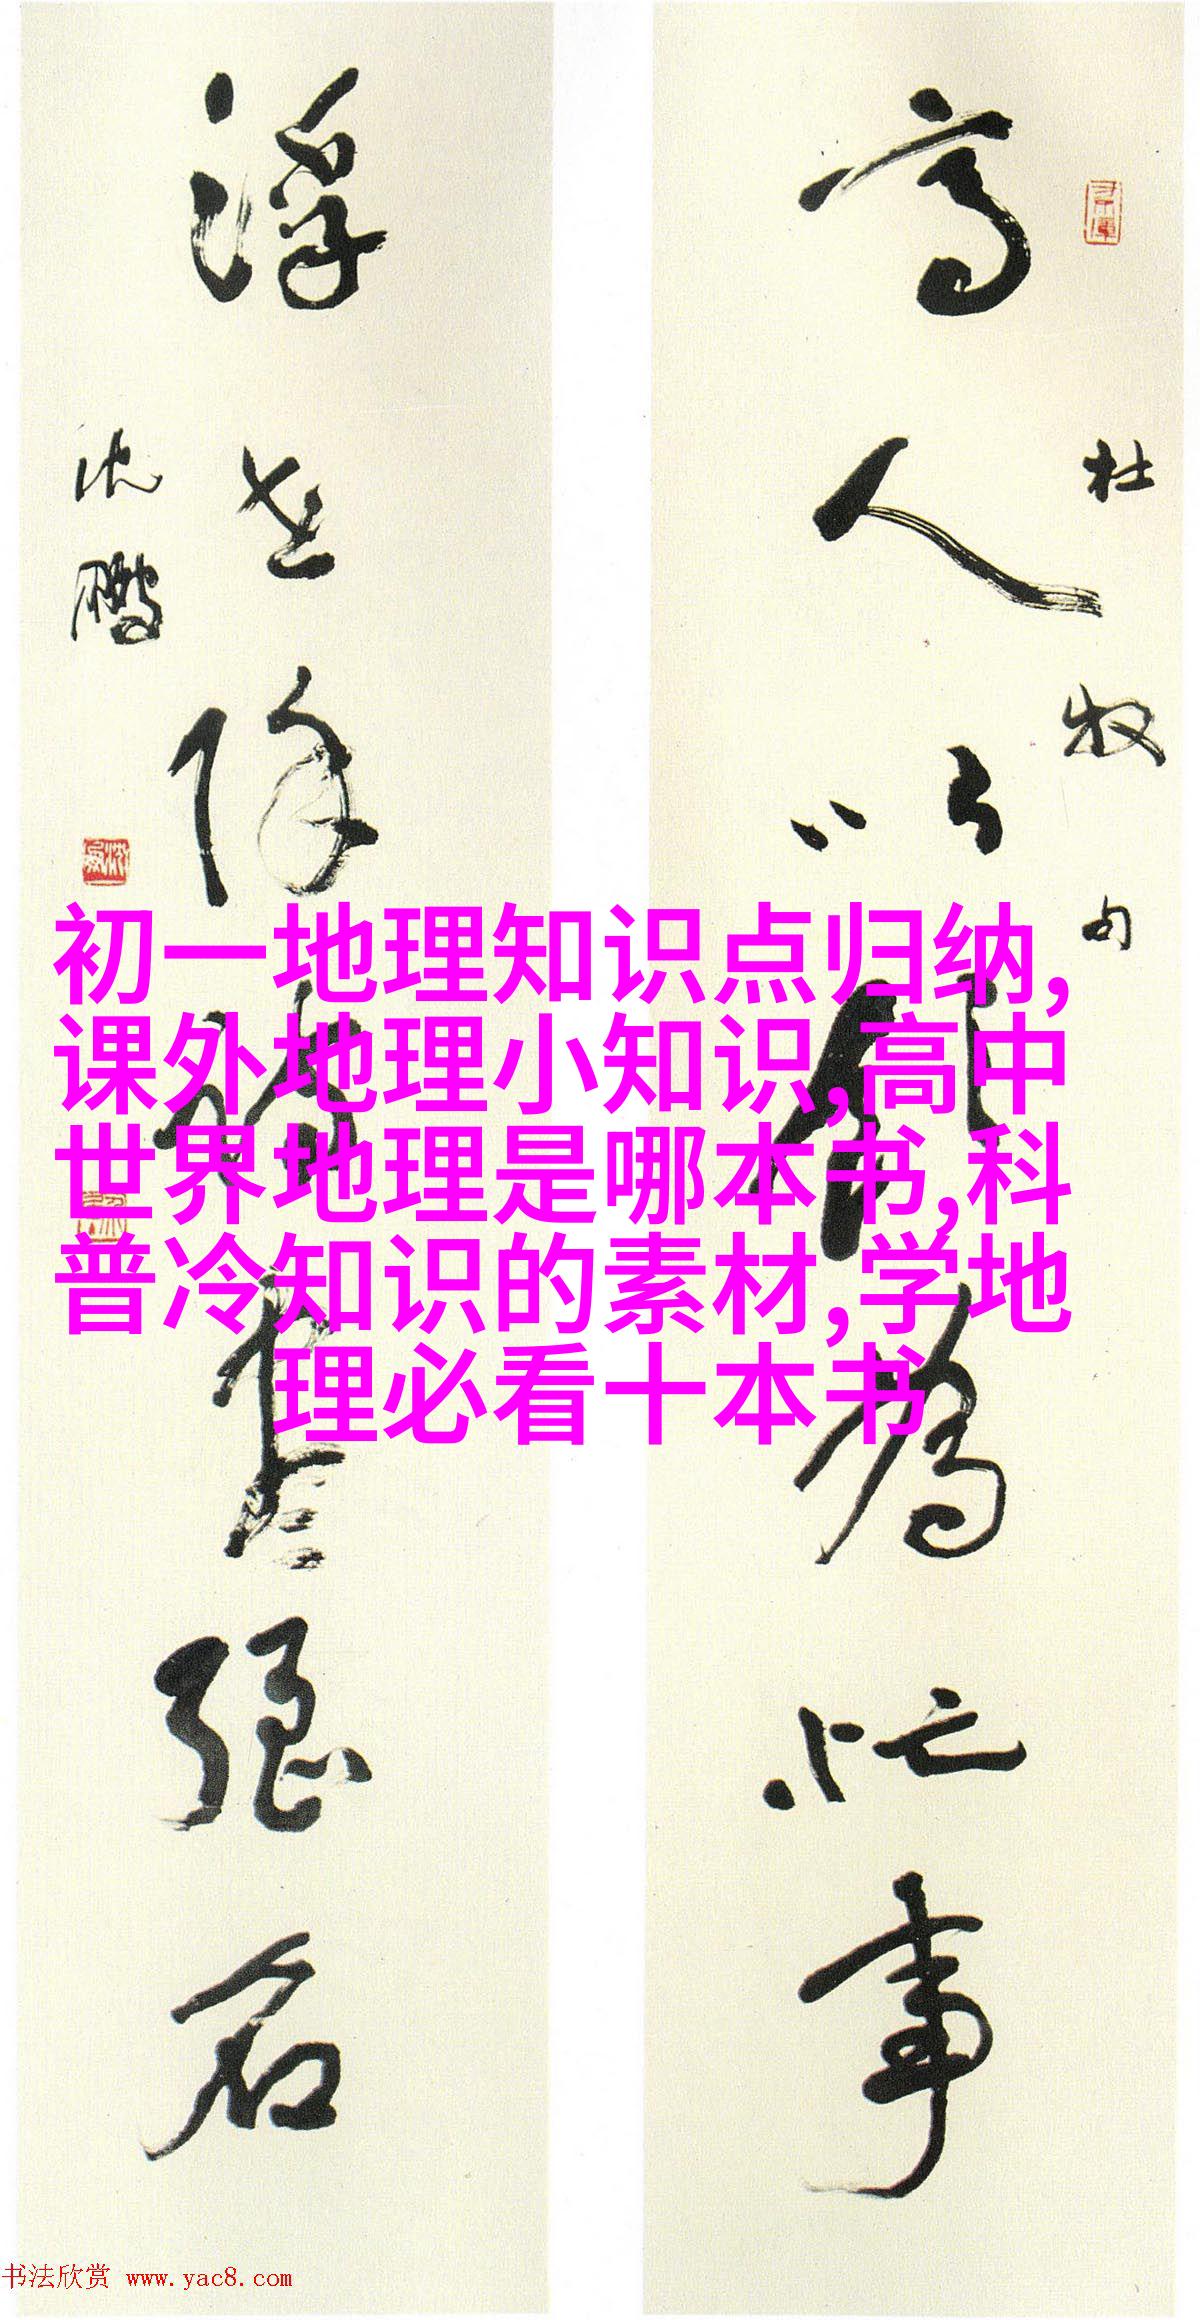 杜牧句
高人以飲為忙事
浮世除詩盡強名
沈鵬
初一地理知识点归纳,
课外地理小知识,高中
世界地理是哪本书,科
普冷知识的素材,学地
理必看十本书
书法欣赏 www.yac8.com